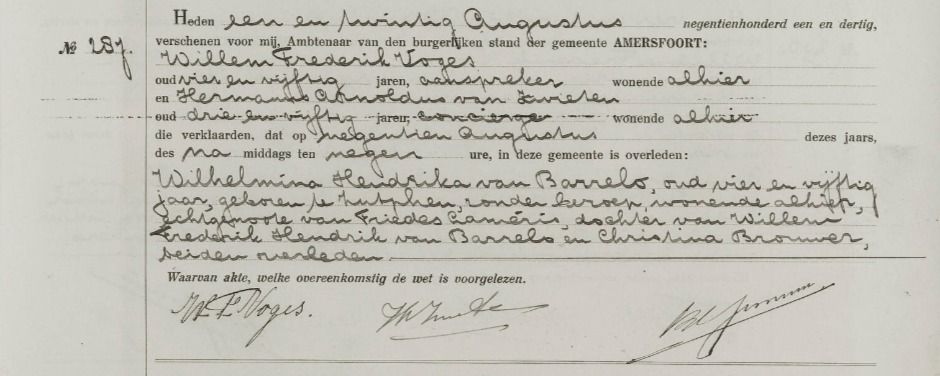 Heden een en twintig Augustus negentienhonderd een en dertig,
№ 287. verschenen voor mij, Ambtenaar van den burgerlijken stand der gemeente AMERSFOORT:
Willem Frederik Voges
oud vier en vijftig jaren, aanspreker wonende alhier
en Hermanus Arnoldus van Zwieten
oud drie en vijftig jaren, concierge wonende alhier
die verklaarden, dat op negentien Augustus dezes jaars,
des na middags ten negen ure, in deze gemeente is overleden:
Wilhelmina Hendrika van Barrelo, oud vier en vijftig
jaar, geboren te Zutphen, zonder beroep, wonende alhier,
echtgenoote van Friedes Caméris, dochter van Willem
Frederik Hendrik van Barrelo en Christina Brouwer,
beiden overleden.
Waarvan akte, welke overeenkomstig de wet is voorgelezen.
W. F. Voges.